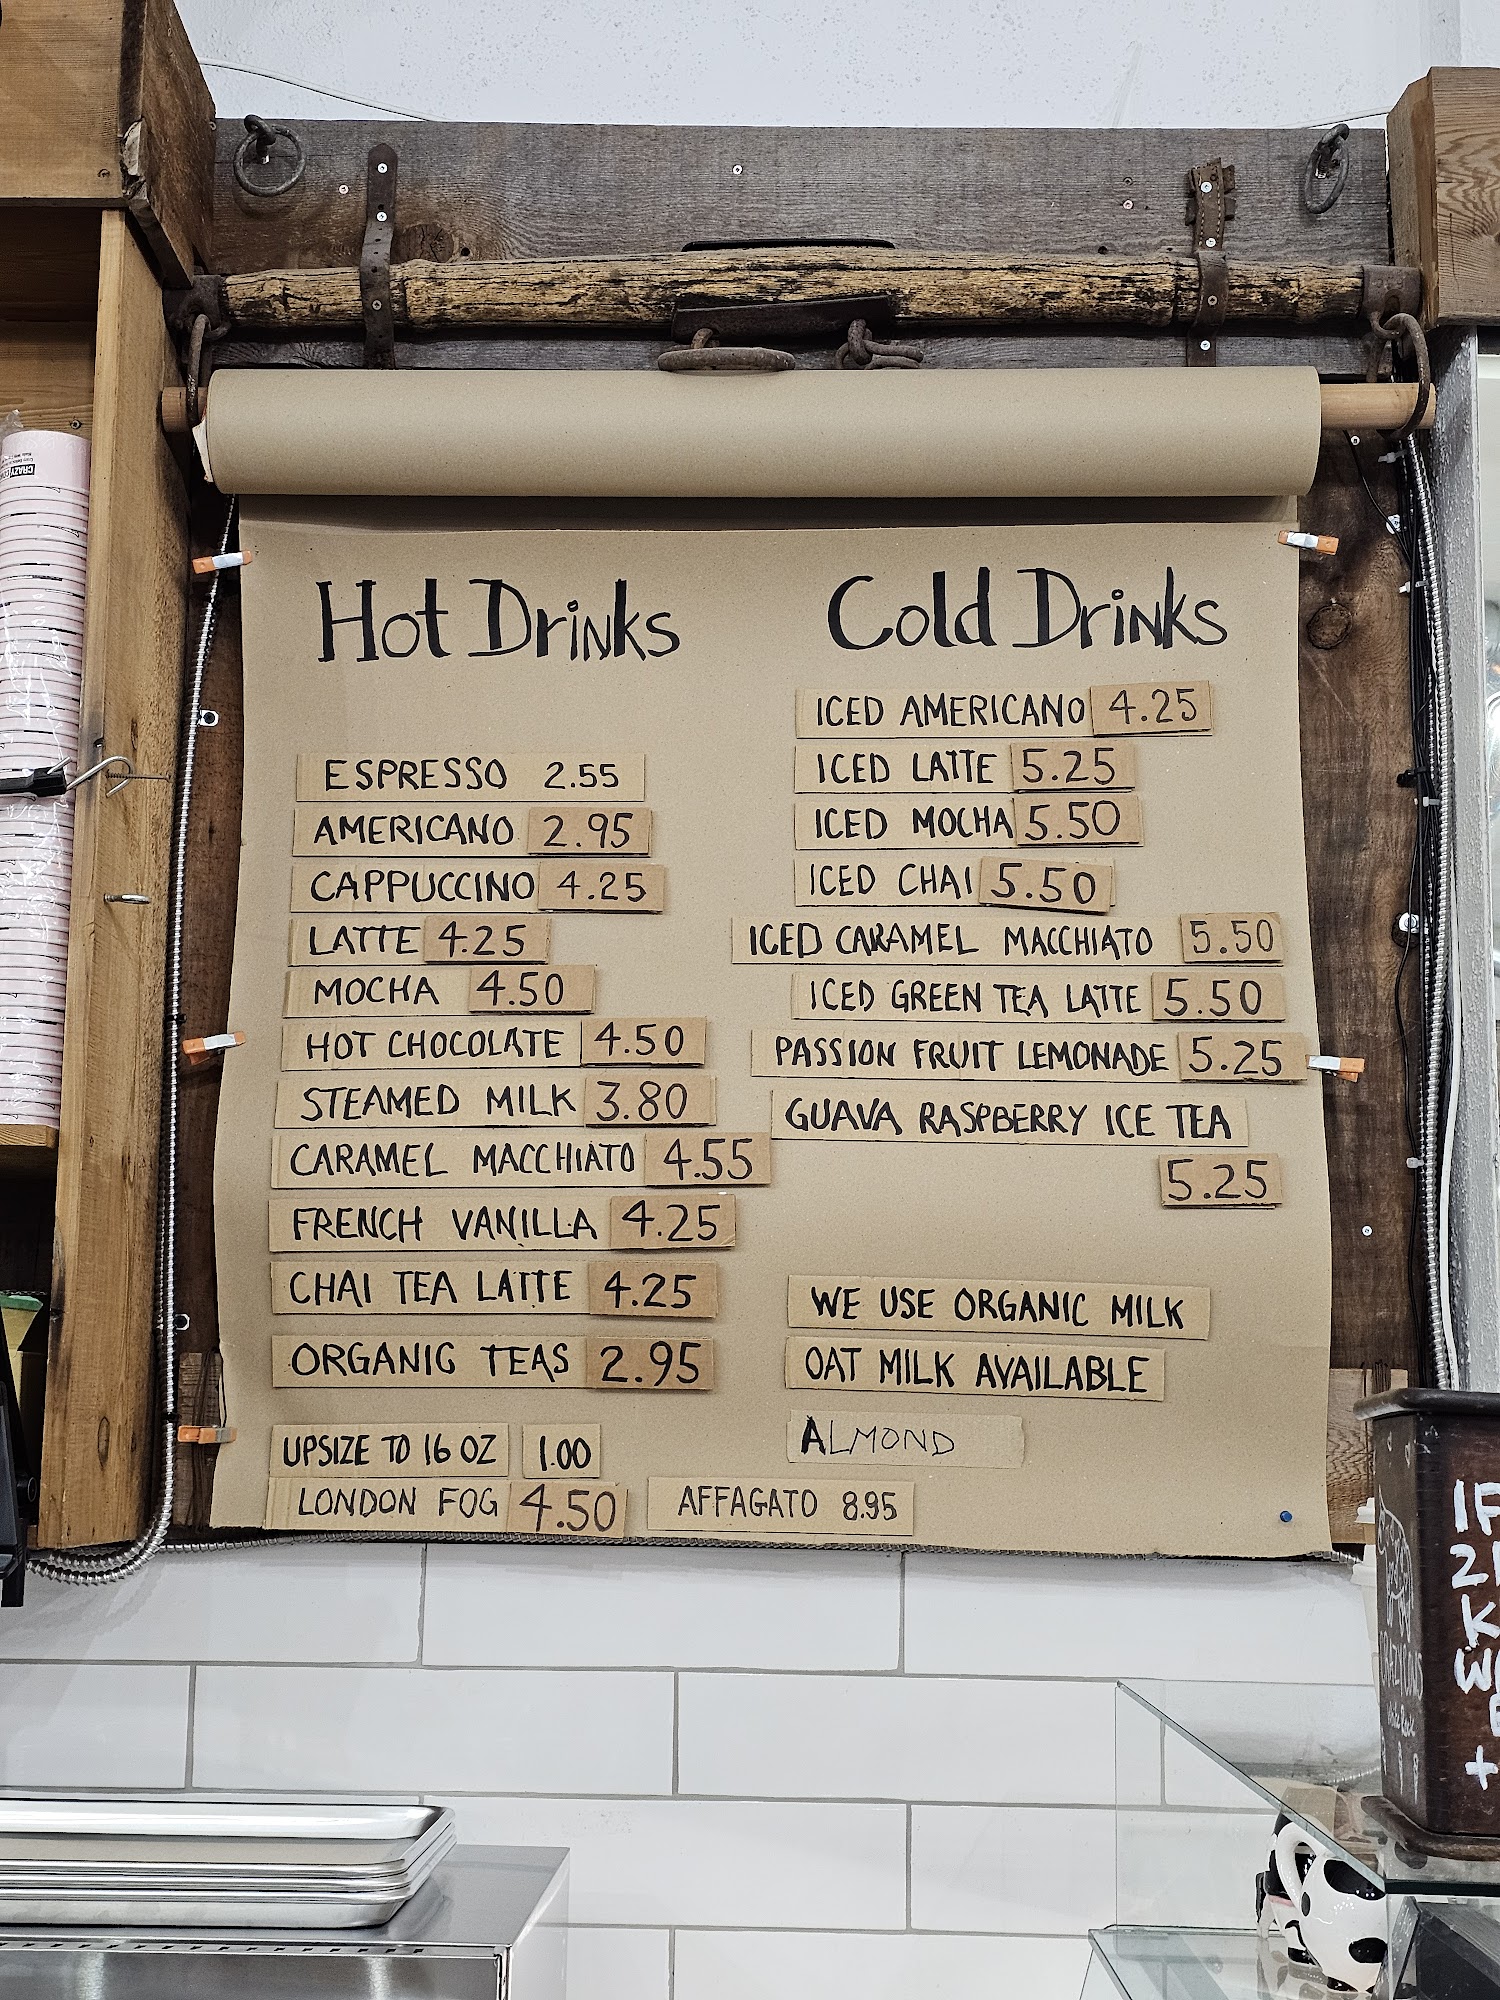 Hot Drinks
ESPRESSO 2.55
AMERICANO 2.95
CAPPUCCINO 4.25
LATTE 4.25
MOCHA 4.50
HOT CHOCOLATE 4.50
STEAMED MILK 3.80
CARAMEL MACCHIATO 4.55
FRENCH VANILLA 4.25
CHAI TEA LATTE 4.25
ORGANIC TEAS 2.95
UPSIZE TO 16 OZ 1.00
LONDON FOG 4.50
AFFAGATO 8.95
Cold Drinks
ICED AMERICANO 4.25
ICED LATTE 5.25
ICED MOCHA 5.50
ICED CHAI 5.50
ICED CARAMEL MACCHIATO 5.50
ICED GREEN TEA LATTE 5.50
PASSION FRUIT LEMONADE 5.25
GUAVA RASPBERRY ICE TEA
5.25
WE USE ORGANIC MILK
OAT MILK AVAILABLE
ALMOND
CRAZY
IF